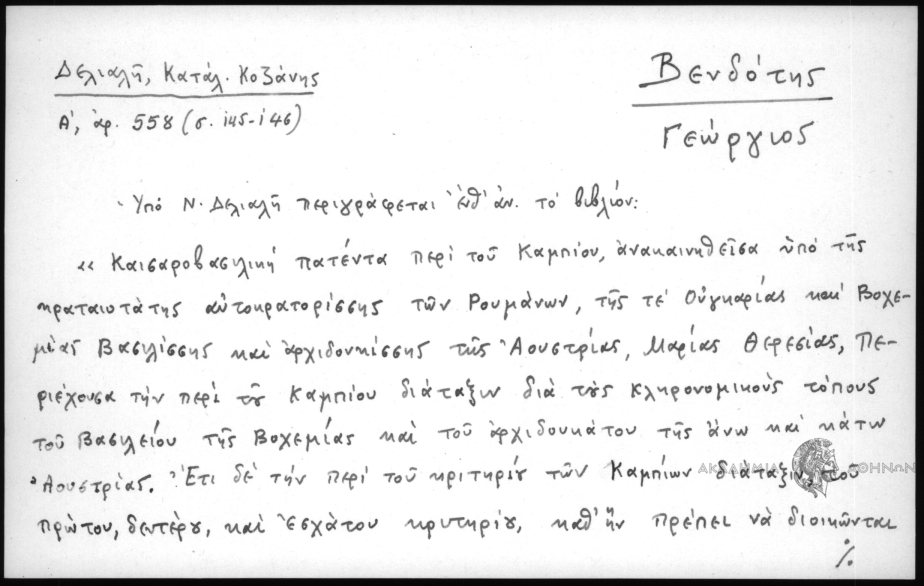 Δελιαλῆ, Κατάλ. Κοζάνης
Βενδότης
Α', ἀρ. 558 (σ. 145-146)
Γεώργιος
Ὑπό Ν. Δελιαλῆ περιγράφεται ἐνθ' ἀν. τό βιβλίον:
«Καισαροβασιλική πατέντα περί τοῦ Καμπίου, ἀνακαινηθεῖσα ὑπό τῆς
κραταιοτάτης αὐτοκρατορίσσης τῶν Ρουμάνων, τῆς τέ Οὐγκαρίας καί Βοχε-
μίας Βασιλίσσης καί ἀρχιδουκίσσης τῆς Ἀουστρίας, Μαρίας Θερεσίας, Πε-
ριέχουσα τήν περί τοῦ Καμπίου διάταξιν διά τούς κληρονομικούς τόπους
τοῦ Βασιλείου τῆς Βοχεμίας καί τοῦ ἀρχιδουκάτου τῆς ἄνω καί κάτω
Ἀουστρίας. Ἔτι δέ τήν περί τοῦ κριτηρίου τῶν Καμπίων διάταξιν, τοῦ
πρώτου, δευτέρου, καί ἐσχάτου κριτηρίου, καθ' ἥν πρέπει νά διοικῶνται
./.
ΑΚΑΔΗΜΙΑ ΑΘΗΝΩΝ